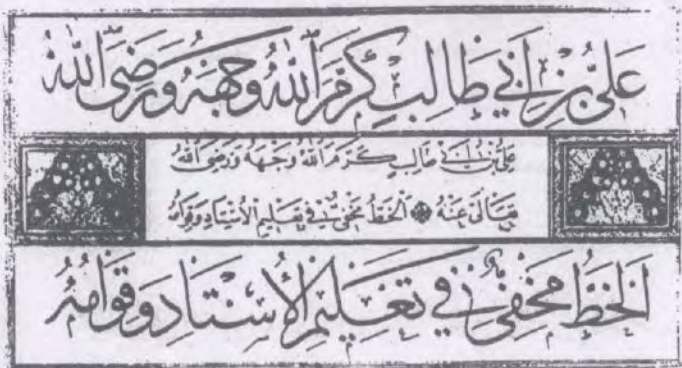 عَلِيُّ بْنُ أَبِي طَالِبٍ كَرَّمَ اللّٰهُ وَجْهَهُ وَرَضِىَ اللّٰهُ
عَلِيُّ بْنُ أَبِي طَالِبٍ كَرَّمَ اللّٰهُ وَجْهَهُ وَرَضِىَ اللّٰهُ
تَعَالَى عَنْهُ الْخَطُّ مَخْفِىٌّ فِي تَعْلِيمِ الْأُسْتَادِ وَقِوَامُهُ
اَلْخَطُّ مَخْفِىٌّ فِي تَعْلِيمِ الْأُسْتَادِ وَقِوَامُهُ